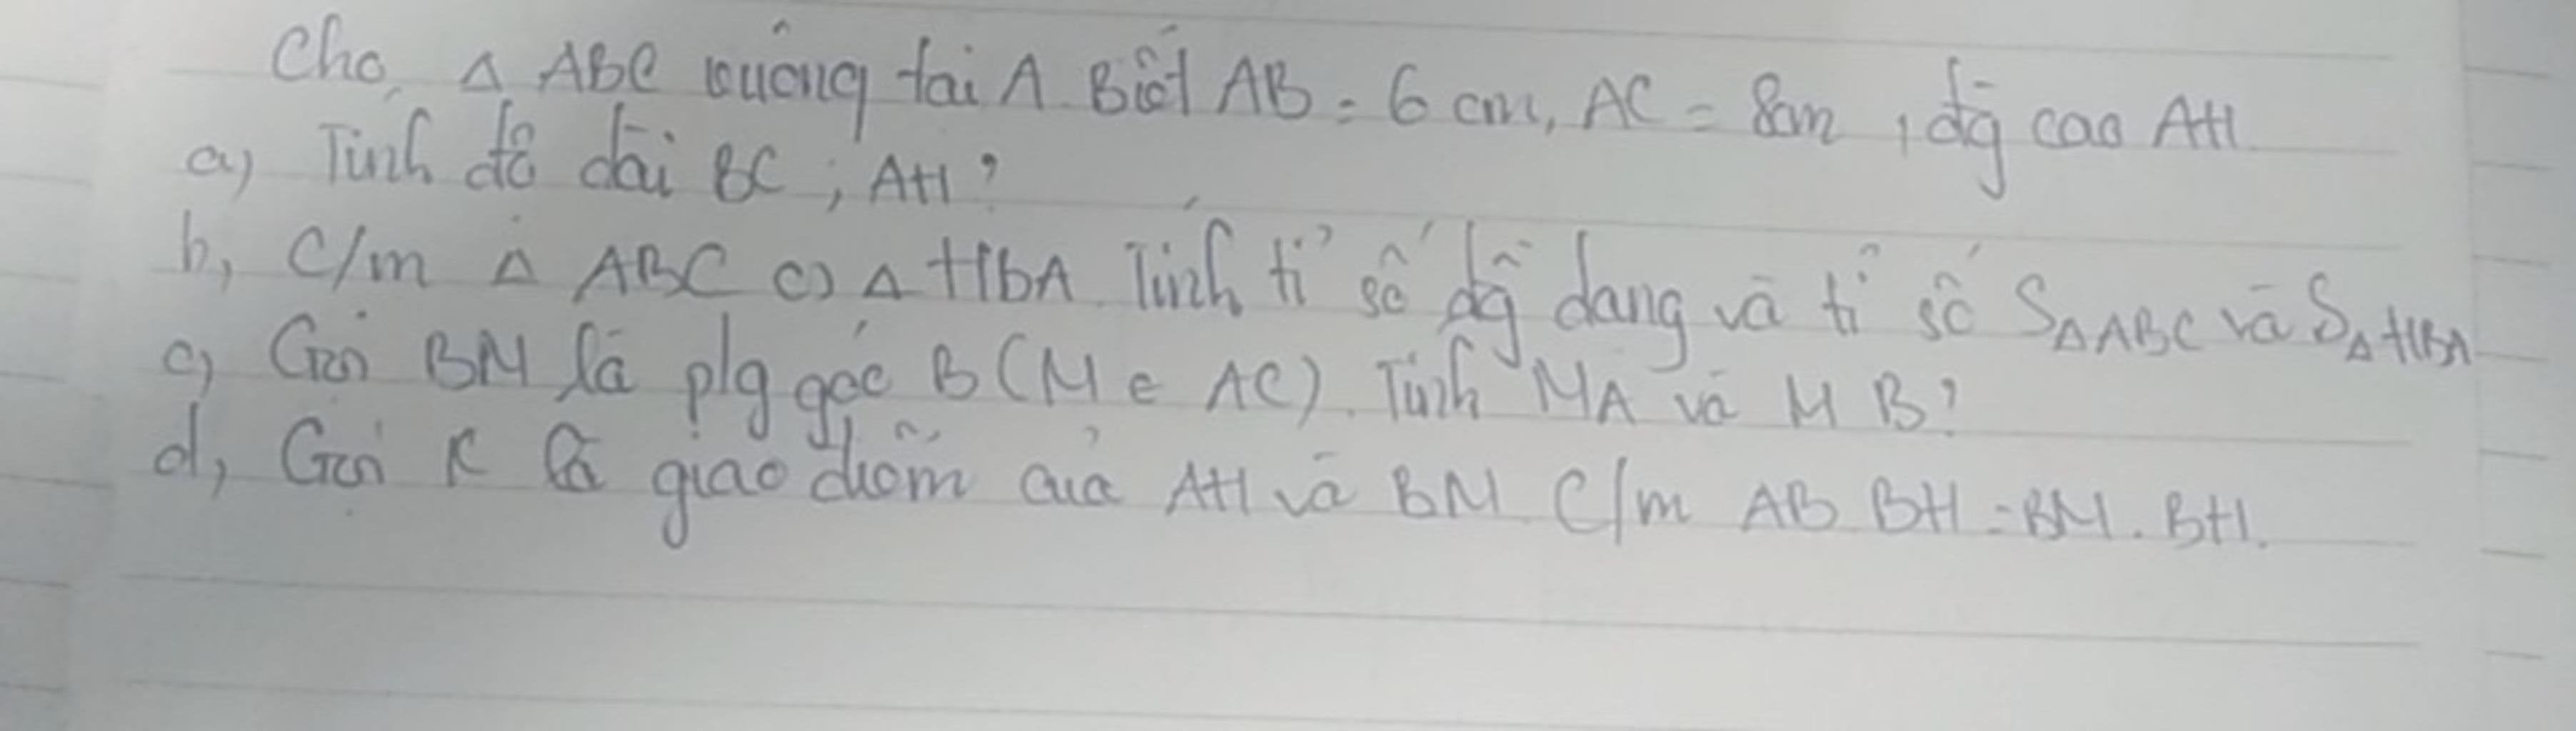 Cho Δ ABC vuông tại A. Biết AB = 6 cm, AC = 8cm, đg cao AH.
a) Tính độ dài BC; AH?
b, C/m Δ ABC ∽ Δ HBA. Tính tỉ số đg dạng và tỉ số SΔABC và SΔHBA
c) Gọi BM là p/g góc B (M ∈ AC). Tính MA và MB?
d, Gọi K là giao điểm của AH và BM. C/m AB BH = BM . BH.